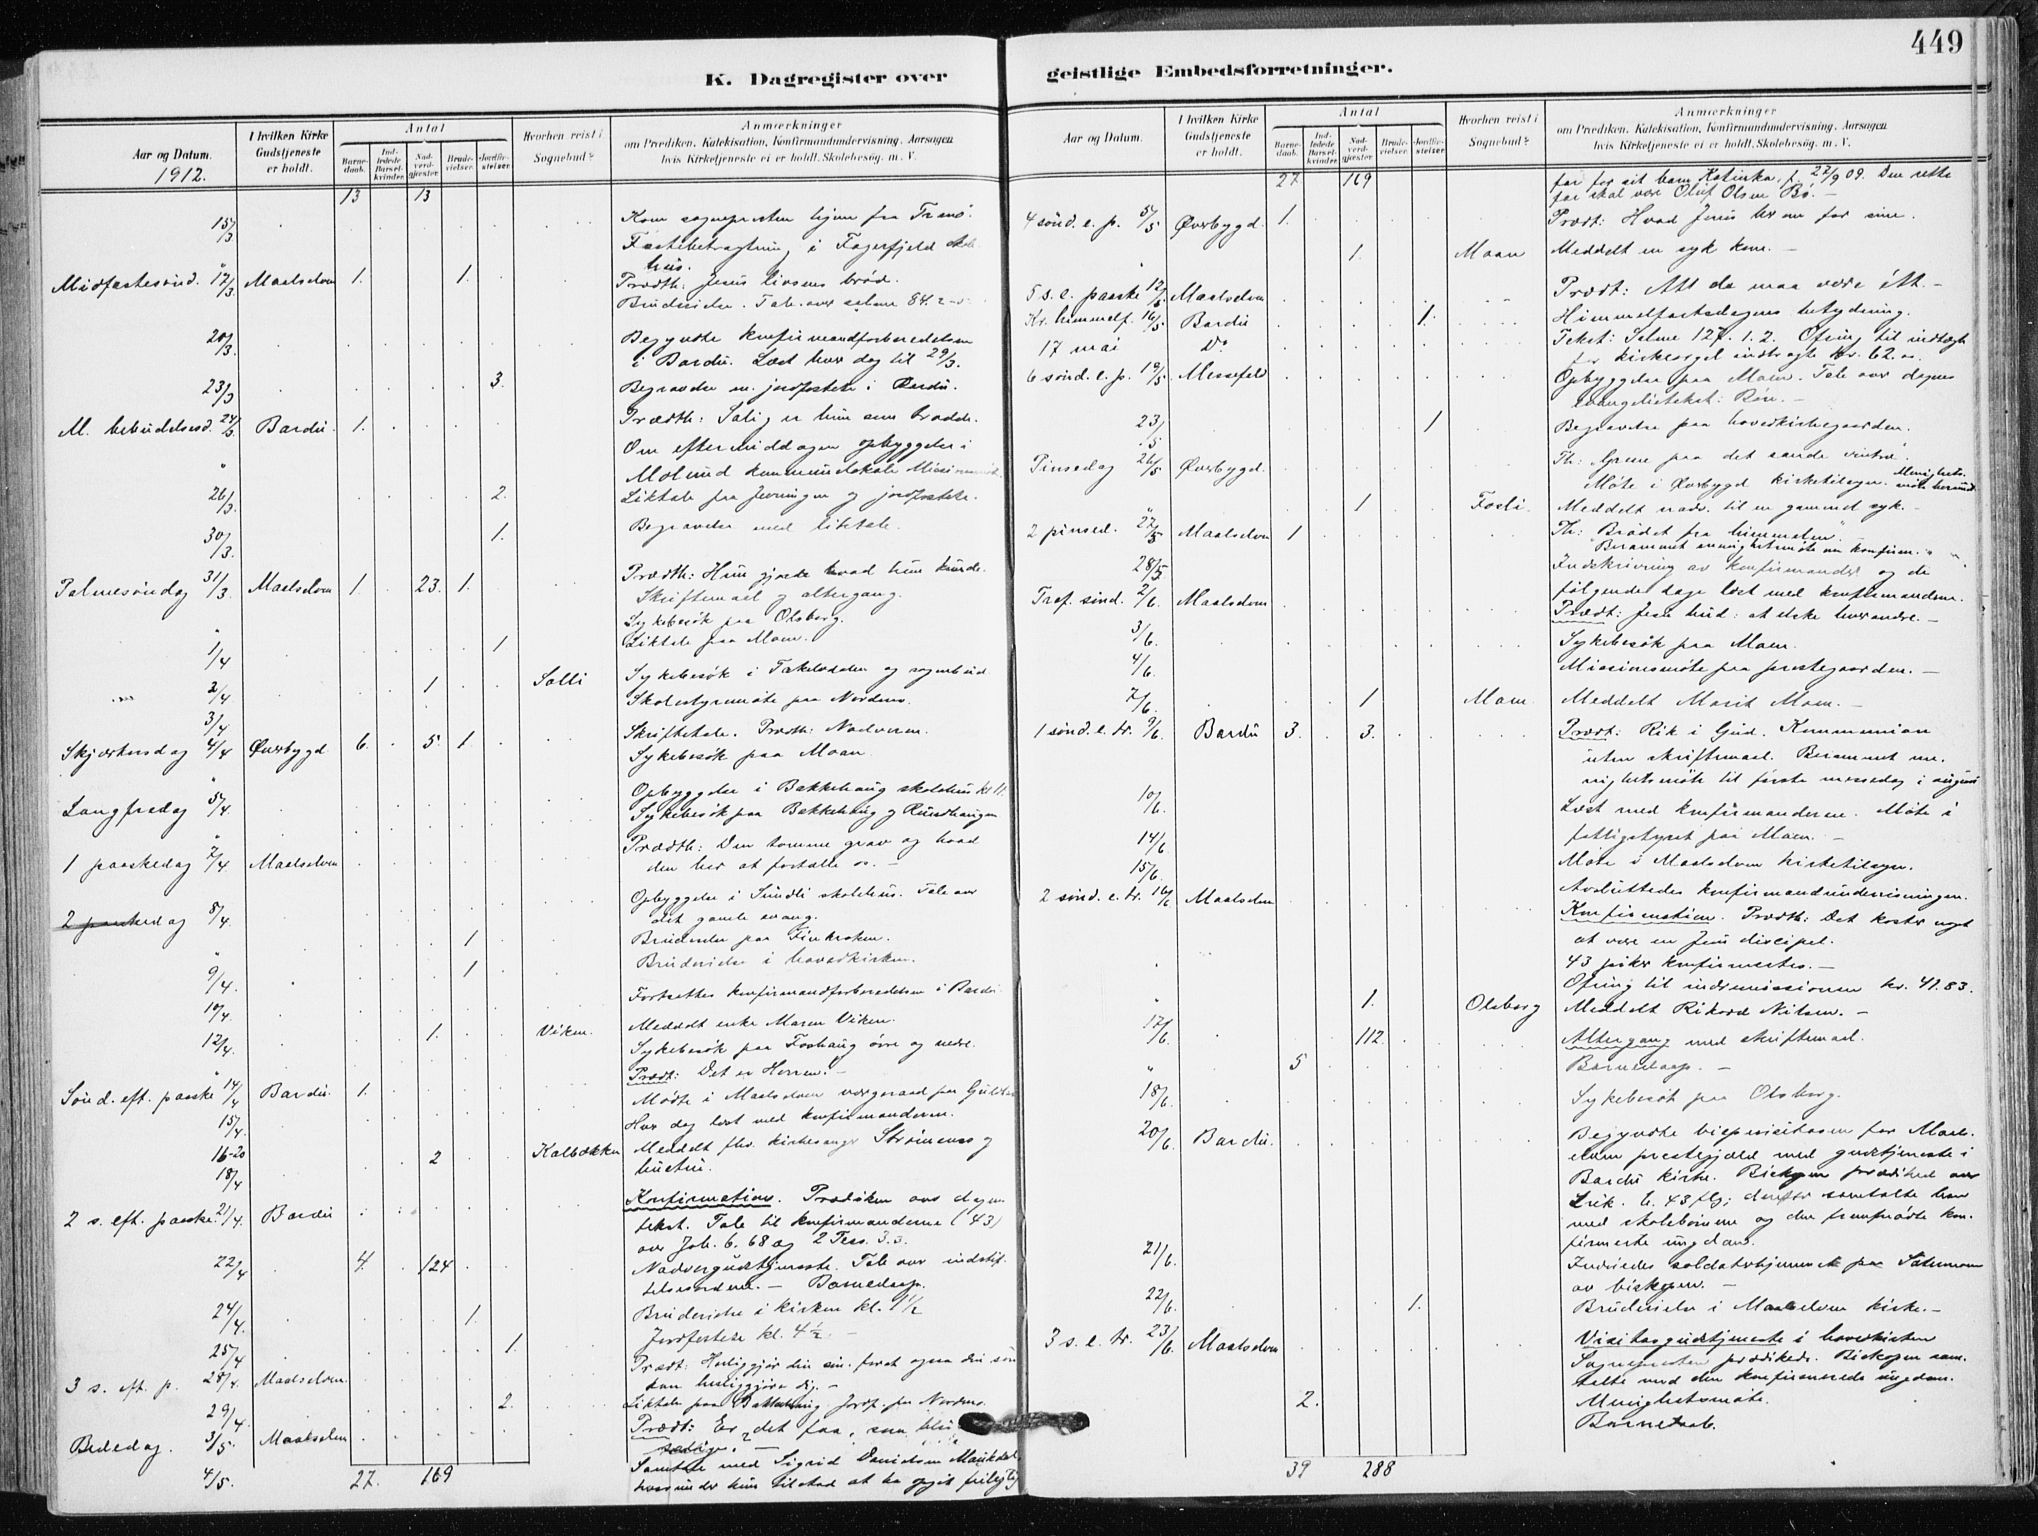 449
K. Dagregister over
geistlige Embedsforretninger.
Aar og Datum.
1912.
I hvilken Kirke Gudstjeneste er holdt.
Antal
Barnedaab.
Indledede Barselkvinder.
Nadverdgjæster.
Brudevielser.
Jordfæstelser.
Hvorhen reist i Sognebud?
Anmærkninger
om Prædiken, Katekisation, Konfirmandundervisning, Aarsagen
hvis Kirketjeneste ei er holdt, Skolebesøg, m. V.
13 13
15/3 Kom sognepresten hjem fra Tranø.
Fastebetragtning i Fagerfjeld skolehus.
Midfastesønd. 17/3 Maalselven 1. 1. Prædth: Jesus livsens brød.
Brudevielse. Tale over salme 84.
20/3 Begyndte konfirmandforberedelsen
i Bardu. Læst hver dag til 29/3.
23/3 3. Begravelse m. jordfæstelse i Bardu.
M. bebudelsesd. 24/3 Bardu. 1. Prædth: Salig er hun som trodde.
" Om eftermiddagen opbyggelse i
Molund kommunelokale
26/3 2. Liktale paa og jordfæstelse.
30/3 1. Begravelse med liktale.
Palmesøndag 31/3 Maalselven 1. 23. 1. Prædth: Hun gjorde hvad hun kunde.
Skriftemaal og altergang.
" Sykebesøk paa Olsborg.
1/4 1 Liktale paa Moen.
2/4 1 Solli Sykebesøk i og sognebud
3/4 Skolestyremøte paa Nordmo.
Skjærtorsdag 4/4 Øverbygd 6. 5. 1. Skriftetale. Prædth: Nadveren.
" Sykebesøk paa Moen
Langfredag 5/4 Opbyggelse i Bakkehaug skolehus kl 11.
" Sykebesøk paa Bakkehaug og Rundhaugen
1 paaskedag 7/4 Maalselven Prædth: Den tomme grav og hvad
den har at fortælle os. —
2 paaskedag 8/4 Opbyggelse i Sundli skolehus. Tale over
det gamle evang.
1 Brudevielse paa Finkroken.
9/4 1 Brudevielse i hovedkirken.
10/4 Fortsættes konfirmandforberedelsen i Bardu
12/4 1. Viken. Meddelt enke Maren Viken.
" Sykebesøk paa Foshaug øvre og nedre.
Sønd. eft. paaske 14/4 Bardu. 1. Prædt: Det er Herren! —
15/4 Møte i Maalselven vergeraad paa
16-20 Hver dag læst med konfirmanderne.
18/4 2 Kalbækken Meddelt fhv. kirkesanger Strømmess og
hustru.
2 s. eft. paaske 21/4 Bardu Konfirmation. Prædiken over dagens
tekst. Tale til konfirmanderne (43)
over Joh. 6. 68 og 2 Tess. 3.3.
22/4 4. 124 Nadvergudstjeneste. Tale over indstif-
telsesordene. — Barnedaap.
24/4 1. Brudevielse i kirken kl. 1 1/2
25/4 1. Jordfæstelse kl. 4 1/2. —
3 s. eft. p. 28/4. Maalselven. Prædt: Herliggjør din søn. forat ogsaa din søn
kan herliggjøre dig. —
29/4. 2. Liktale paa Bakkehaug. Jordf. paa Nordmo.
Bededag. 3/5 Maalselven Prædt: Er det faa, som blir
salige? —
4/5. 27. 169 Samtale med Sigrid Danielsen
hvorunder hun tilstod at ha opgit
Aar og Datum.
I hvilken Kirke Gudstjeneste er holdt.
Antal
Barnedaab.
Indledede Barselkvinder.
Nadverdgjæster.
Brudevielser.
Jordfæstelser.
Hvorhen reist i Sognebud?
Anmærkninger
om Prædiken, Katekisation, Konfirmandundervisning, Aarsagen
hvis Kirketjeneste ei er holdt, Skolebesøg, m. V.
27 169 far for sit barn Katinka, f. 27/9 09. Den rette
far skal være Oluf Olsen Bø. —
4 sønd. e. p. 5/5 Øverbygd. 1. Prædt: Hvad Jesus ber om for sine.
" 1. Moen Meddelt en syk kone. —
5 s. e. paaske 12/5 Maalselven Prædt: Att de maa være ét. —
Kr. himmelf. 16/5 Bardu 1. Himmelfartsdagens betydning.
17 mai Do Tekst: Salme 127. 1. 2. Ofring til indtægt
for kirkeorgel indbragte kr. 62.
6 sønd. e. p. 19/5 Messefeld Opbyggelse paa Moen. Tale over dagens
evangelietekst: Bøn. —
23/5 1 Begravelse paa hovedkirkegaarden.
Pinsedag 26/5 Øverbygd. Th: Grene paa det sande vintræ.
Møte i Øverbygd kirketilsyn. Menighetsmøte
" 1 Fosli. Meddelt nadv. til en gammel syk. —
2 pinsed. 27/5 Maalselven 1 Th: Brødet fra himmelen.
Berammet menighetsmøte om konfirm.
28/5 Indskrivning av konfirmander og de
følgende dage læst med konfirmanderne.
Tref. sønd. 2/6. Maalselven Prædt: Jesu bud: at elske hverandre. —
3/6. Sykebesøk paa Moen.
4/6. Missionsmøte paa prestegaarden. —
7/6. 1 Moen Meddelt Marit Moen. —
1 sønd. e. tr. 9/6. Bardu 3. 3. Prædt: Rik i Gud. Kommunion
uten skriftemaal. Berammet me-
nighetsmøte til første messedag i august
10/6. Læst med konfirmanderne. Møte i
fattigstyret paa Moen. —
14/6. Møte i Maalselven kirketilsyn.
15/6. Avsluttedes konfirmandundervisningen.
2 sønd. e. tr. 16/6 Maalselven Konfirmation. Prædth: Det koster noget
at være en Jesu discipel.
43 piker konfirmertes. —
Ofring til indremissionen kr. 41.83.
" 1. Olsborg Meddelt Rikard Nilsen. —
17/6 112. Altergang med skriftemaal.
" 5 Barnedaap. —
18/6. Sykebesøk paa Olsborg.
20/6. Bardu. Begyndte bispevisitasen for Maals-
elven prestegjæld med gudstjeneste i
Bardu kirke. Biskopen prædiket over
Luk. 6. 43 flg; derefter samtalte han
med skolebørnene og den fremmødte kon-
firmerte ungdom.
21/6. Indviedes soldaterhjemmet paa Sætermoen
av biskopen. —
22/6. 1. Brudevielse i Maalselven kirke. —
3 s. e. tr. 23/6. Maalselven Visitasgudstjeneste i hovedkirken
Sognepresten prædikede. Biskopen sam-
talte med den konfirmerede ungdom.
Menighetsmøte.
2. Barnedaab.
39 288